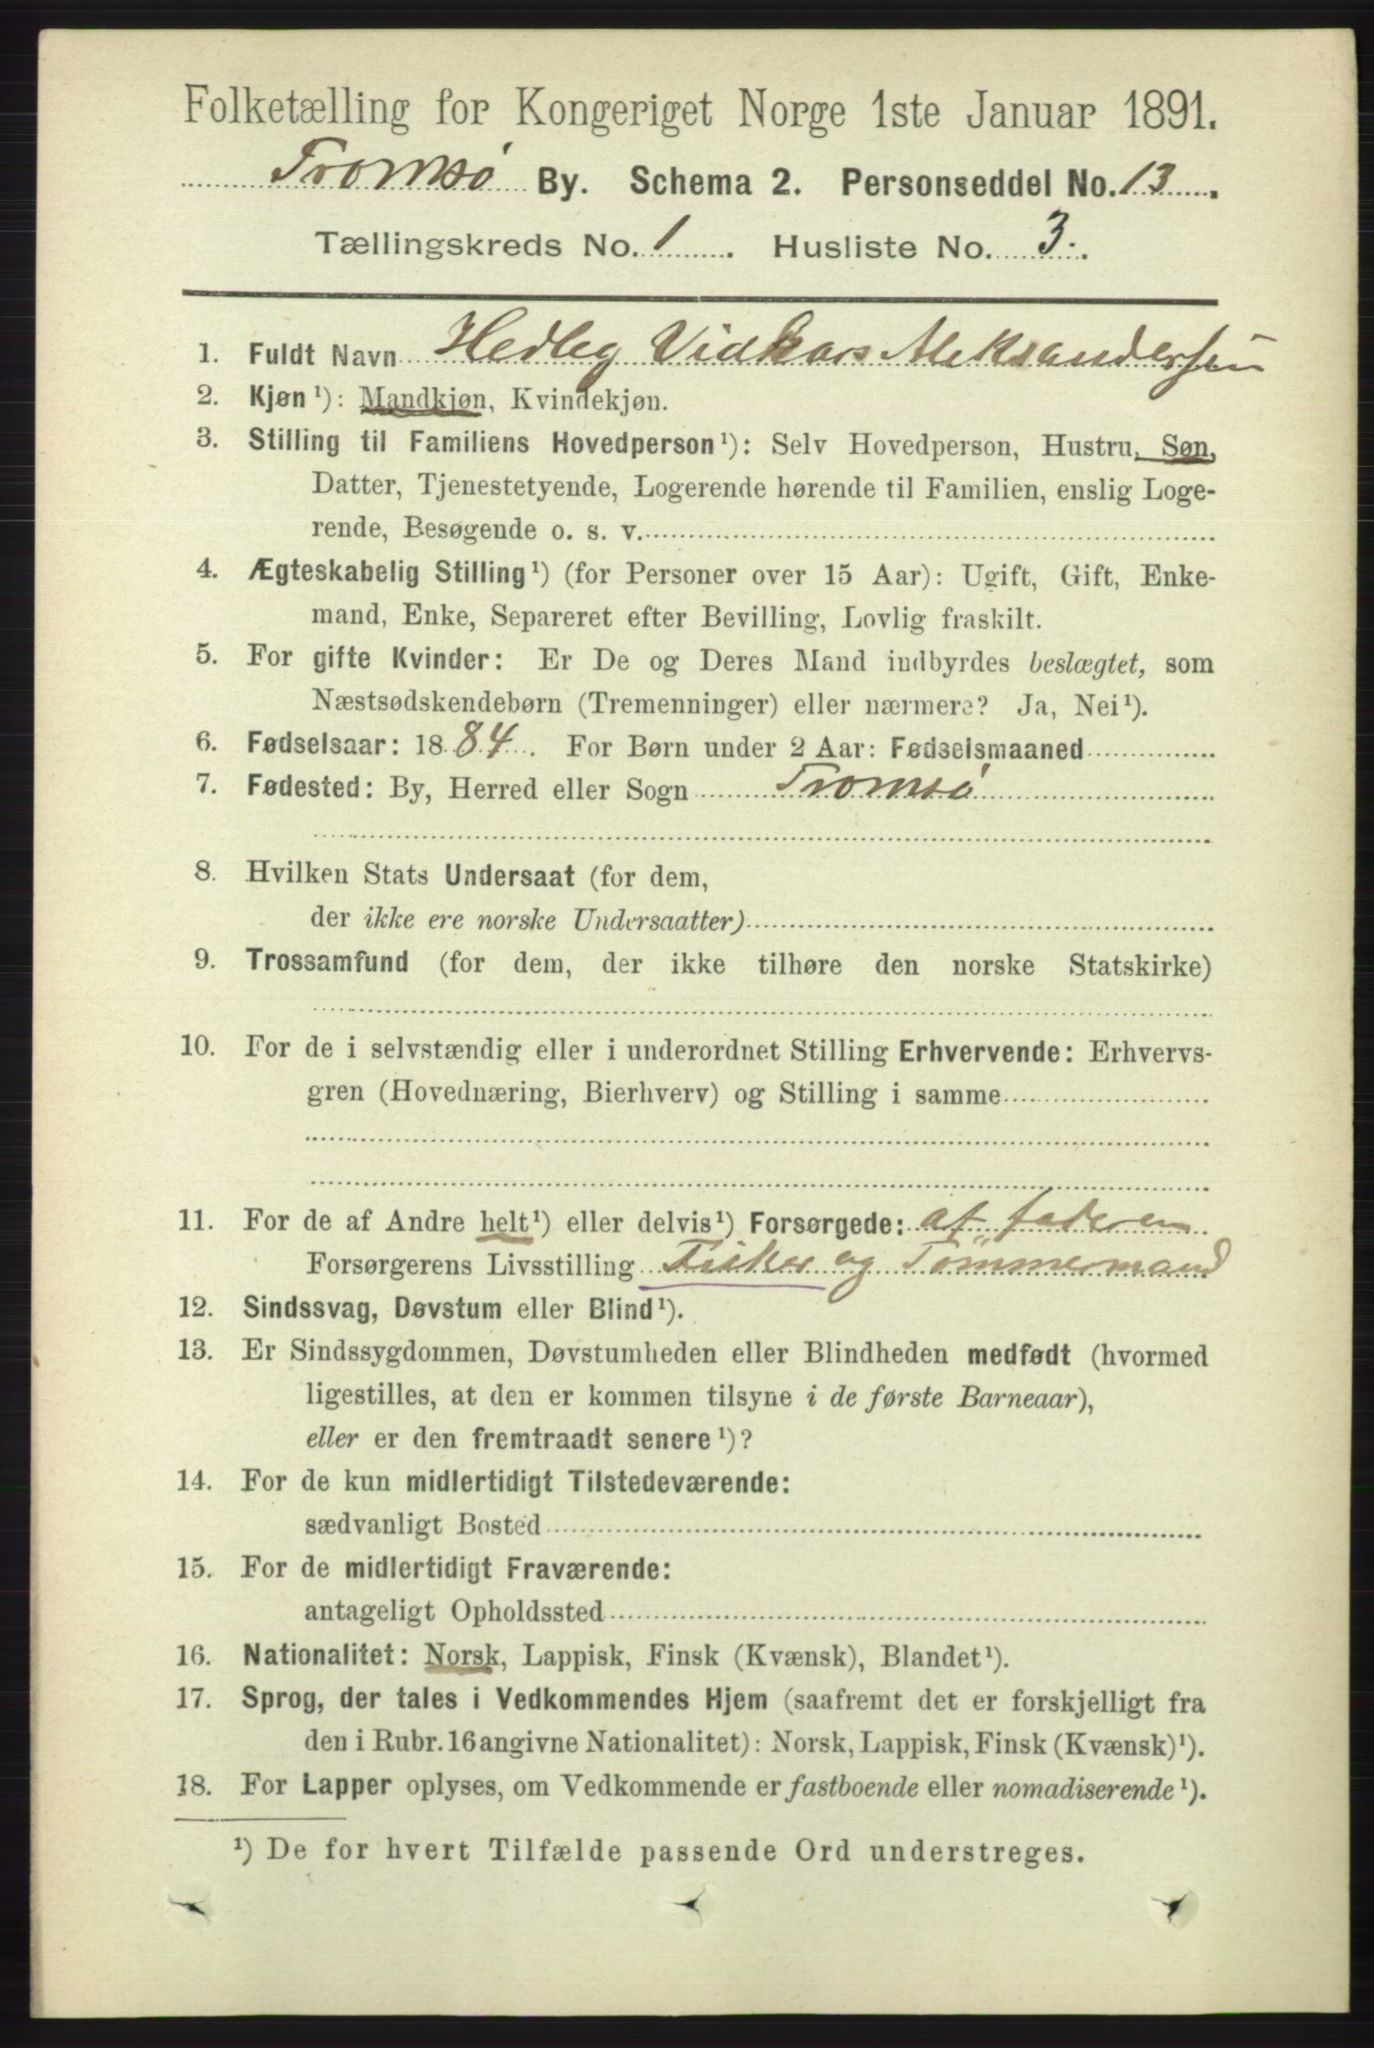 Folketælling for Kongeriget Norge 1ste Januar 1891.
Tromsø By. Schema 2. Personseddel No. 13.
Tællingskreds No. 1. Husliste No. 3.
1. Fuldt Navn Hedleg Vidkars Aleksandersen
2. Kjøn¹): Mandkjøn, Kvindekjøn.
3. Stilling til Familiens Hovedperson¹): Selv Hovedperson, Hustru, Søn,
Datter, Tjenestetyende, Logerende hørende til Familien, enslig Loge-
rende, Besøgende o. s. v.
4. Ægteskabelig Stilling¹) (for Personer over 15 Aar): Ugift, Gift, Enke-
mand, Enke, Separeret efter Bevilling, Lovlig fraskilt.
5. For gifte Kvinder: Er De og Deres Mand indbyrdes beslægtet, som
Næstsødskendebørn (Tremenninger) eller nærmere? Ja, Nei¹).
6. Fødselsaar: 1884. For Børn under 2 Aar: Fødselsmaaned
7. Fødested: By, Herred eller Sogn Tromsø
8. Hvilken Stats Undersaat (for dem,
der ikke ere norske Undersaatter)
9. Trossamfund (for dem, der ikke tilhøre den norske Statskirke)
10. For de i selvstændig eller i underordnet Stilling Erhvervende: Erhvervs-
gren (Hovednæring, Bierhverv) og Stilling i samme
11. For de af Andre helt¹) eller delvis¹) Forsørgede: af faderen
Forsørgerens Livsstilling Fisker og Tømmermand
12. Sindssvag, Døvstum eller Blind¹).
13. Er Sindssygdommen, Døvstumheden eller Blindheden medfødt (hvormed
ligestilles, at den er kommen tilsyne i de første Barneaar),
eller er den fremtraadt senere¹)?
14. For de kun midlertidigt Tilstedeværende:
sædvanligt Bosted
15. For de midlertidigt Fraværende:
antageligt Opholdssted
16. Nationalitet: Norsk, Lappisk, Finsk (Kvænsk), Blandet¹).
17. Sprog, der tales i Vedkommendes Hjem (saafremt det er forskjelligt fra
den i Rubr. 16 angivne Nationalitet): Norsk, Lappisk, Finsk (Kvænsk)¹).
18. For Lapper oplyses, om Vedkommende er fastboende eller nomadiserende¹).
¹) De for hvert Tilfælde passende Ord understreges.